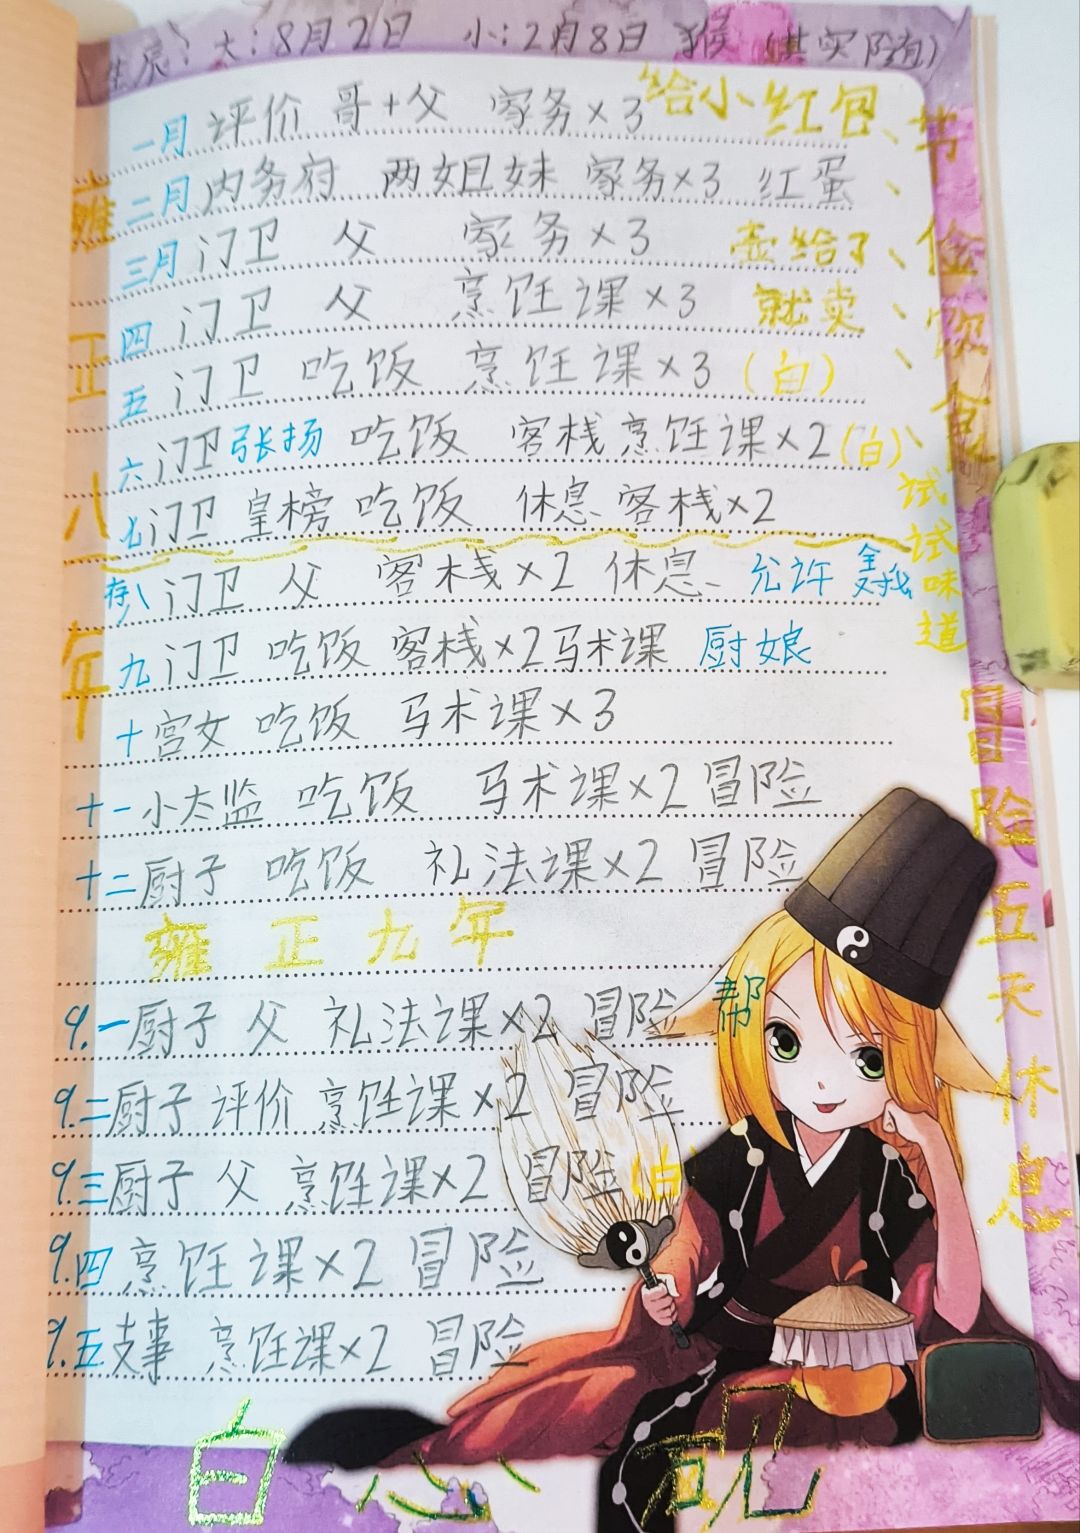 生辰：大：8月2日 小：2月8日 猴（其实随）
一月 评价 哥+父 家务×3 给小红包
二月 内务府 两姐妹 家务×3 红蛋
三月 门卫 父 家务×3 壶给了
四 门卫 父 烹饪课×3 就卖
五 门卫 吃饭 烹饪课×3（白）
六 门卫 张扬 吃饭 客栈 烹饪课×2（白）
七 门卫 皇榜 吃饭 休息 客栈×2
存八 门卫 父 客栈×2 休息 允许
九 门卫 吃饭 客栈×2 马术课 厨娘
十 宫女 吃饭 马术课×3
十一 小太监 吃饭 马术课×2 冒险
十二 厨子 吃饭 礼法课×2 冒险
雍正九年
9.一 厨子 父 礼法课×2 冒险 帮
9.二 厨子 评价 烹饪课×2 冒险
9.三 厨子 父 烹饪课×2 冒险（白）
9.四 烹饪课×2 冒险
9.五 支事 烹饪课×2 冒险
雍正八年
节俭饮食
试试味道
冒险五天休息
白心砚